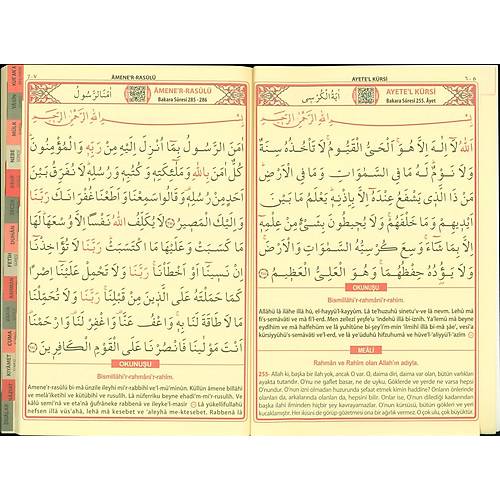 ٦ - 6
AYETE'L KÜRSİ
اٰيَةُ الْكُرْسِى
AYETE'L KÜRSİ
Bakara Sûresi 255. Âyet
بِسْمِ اللّٰهِ الرَّحْمٰنِ الرَّحِيمِ
اَللّٰهُ لَٓا اِلٰهَ اِلَّا هُوَ اَلْحَىُّ الْقَيُّومُ لَا تَأْخُذُهُ سِنَةٌ
وَلَا نَوْمٌ لَهُ مَا فِى السَّمٰوَاتِ وَمَا فِى الْاَرْضِ
مَنْ ذَا الَّذِى يَشْفَعُ عِنْدَهُٓ اِلَّا بِاِذْنِهِ يَعْلَمُ مَا بَيْنَ
اَيْدِيهِمْ وَمَا خَلْفَهُمْ وَلَا يُحِيطُونَ بِشَىْءٍ مِنْ عِلْمِهِٓ
اِلَّا بِمَا شَٓاءَ وَسِعَ كُرْسِيُّهُ السَّمٰوَاتِ وَالْاَرْضَ
وَلَا يَؤُدُهُ حِفْظُهُمَا وَهُوَ الْعَلِىُّ الْعَظِيمُ
OKUNUŞU
Bismillâhi'r-rahmâni'r-rahîm.
Allâhü lâ ilâhe illâ hû, el-hayyü'l-kayyûm. Lâ te'huzuhû sinetu'v-ve lâ nevm. Lehû mâ
fi's-semâvâti ve mâ fi'l-erd. Men zelleẕî yeşfeu 'ındehû illâ bi-iznih. Ya'lemü mâ beyne
eydîhim ve mâ halfehüm ve lâ yuhîtûne bi şey'im-min 'ilmihî illâ bi-mâ şâe', vesi'a
kürsiyyühü's-semâvâti ve'l-erd, ve lâ ye'ûduhû hıfzuhumâ ve hüve'l-'aliyyü'l-'azîm
MEÂLİ
Rahmân ve Rahîm olan Allah'ın adıyla.
255- Allah ki, başka bir ilah yok, ancak O var. O, daima diri, daima var olan, bütün varlıkları
ayakta tutandır. O'nu ne gaflet basar, ne de uyku. Göklerde ve yerde ne varsa hepsi
O'nun. O'nun izni olmadan huzurunda şefaat etmek kimin haddine? Onların önlerinde
olanları da, arkalarında olanları da, hepsini bilir. Onlar ise, O'nun dilediği kadarından
başka ilahî ilminden hiçbir şey kavrayamazlar. O'nun kürsüsü, bütün gökleri ve yeri
kucaklamıştır. Her ikisini de görüp gözetmesi ona bir ağırlık vermez. O çok ulu, çok büyüktür.
7 - ٧
ÂMENE'R-RASÛLÜ
اٰمَنَ الرَّسُولُ
ÂMENE'R-RASÛLÜ
Bakara Sûresi 285 - 286
بِسْمِ اللّٰهِ الرَّحْمٰنِ الرَّحِيمِ
اٰمَنَ الرَّسُولُ بِمَٓا اُنْزِلَ اِلَيْهِ مِنْ رَبِّهِ وَالْمُؤْمِنُونَ
كُلٌّ اٰمَنَ بِاللّٰهِ وَمَلٰٓئِكَتِهِ وَكُتُبِهِ وَرُسُلِهِ لَا نُفَرِّقُ بَيْنَ
اَحَدٍ مِنْ رُسُلِهِ وَقَالُوا سَمِعْنَا وَاَطَعْنَا غُفْرَانَكَ رَبَّنَا
وَاِلَيْكَ الْمَصِيرُ لَا يُكَلِّفُ اللّٰهُ نَفْسًا اِلَّا وُسْعَهَا لَهَا
مَا كَسَبَتْ وَعَلَيْهَا مَا اكْتَسَبَتْ رَبَّنَا لَا تُؤَاخِذْنَٓا
اِنْ نَسِينَٓا اَوْ اَخْطَأْنَا رَبَّنَا وَلَا تَحْمِلْ عَلَيْنَٓا اِصْرًا
كَمَا حَمَلْتَهُ عَلَى الَّذِينَ مِنْ قَبْلِنَا رَبَّنَا وَلَا تُحَمِّلْنَا
مَا لَا طَاقَةَ لَنَا بِهِ وَاعْفُ عَنَّا وَاغْفِرْ لَنَا وَارْحَمْنَا
اَنْتَ مَوْلٰينَا فَانْصُرْنَا عَلَى الْقَوْمِ الْكَافِرِينَ
OKUNUŞU
Bismillâhi'r-rahmâni'r-rahîm.
Âmene'r-rasûlü bi-mâ ünzile ileyhi mi'r-rabbihî ve'l-mü'minûn. Küllün âmene billâhi
ve melâ'iketihî ve kütübihî ve rusulih. Lâ nüferriku beyne ehadi'm-mi'r-rusulih. Ve
kâlû semi'nâ ve eta'nâ ğufrâneke rabbenâ ve ileyke'l-masîr Lâ yükellifullahü
nefsen illâ vüs'ahâ, lehâ mâ kesebet ve 'aleyhâ me-ktesebet. Rabbenâ lâ
YÂSİN
MÜLK
NEBE
FETİH
DUHÂN
CUMA
KIYAMET